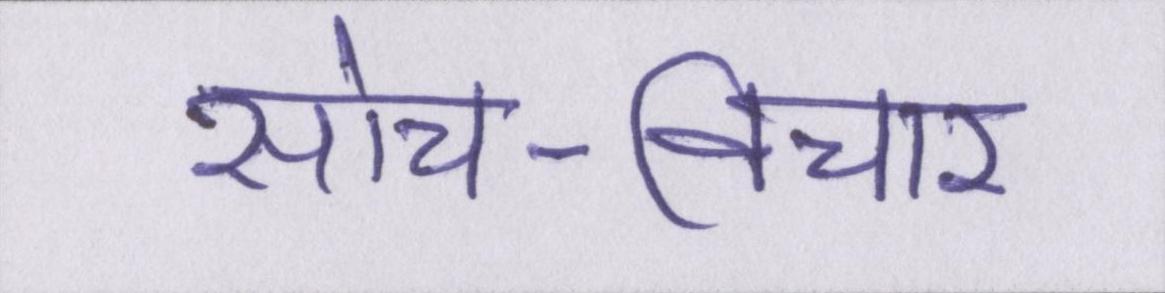 सोच-विचार